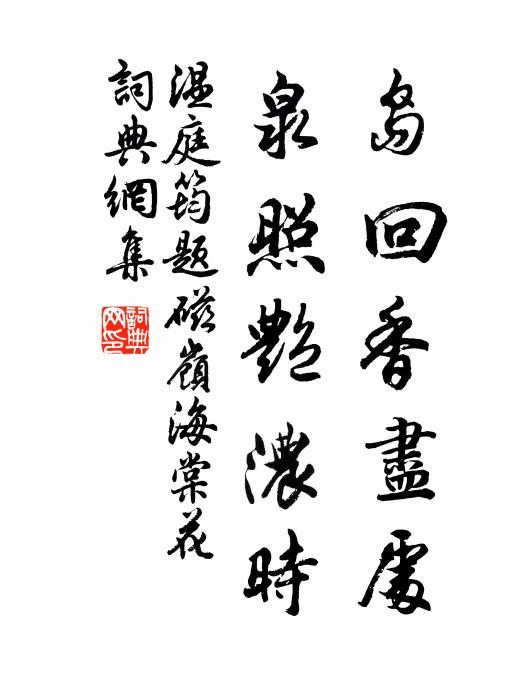 島回香盡處
泉照艷濃時
溫庭筠題磁嶺海棠花
詞典網集
詞典网印